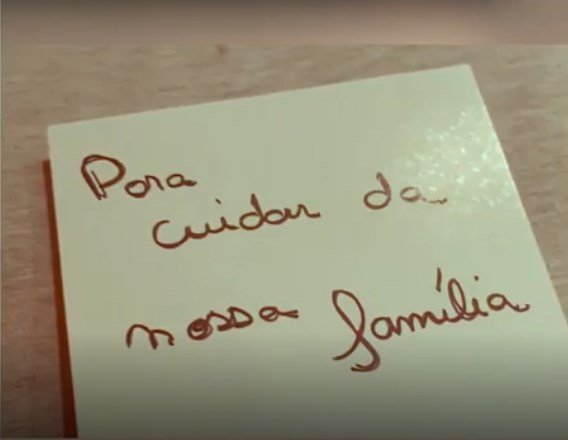 Para
cuidar da
nossa família